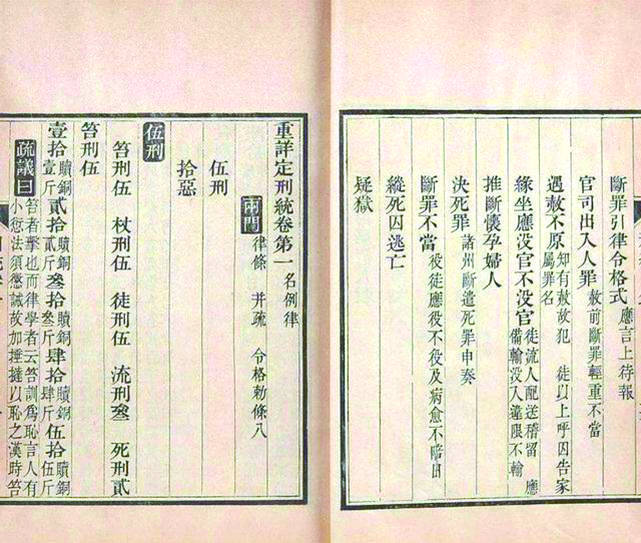 斷罪引律令格式 應言上待報
官司出入人罪 赦前斷罪輕重不當
遇赦不原 知有赦故犯 徒以上呼囚告家屬罪名
緣坐應沒官不沒官 徒流人配送稽留 應備輸沒入違限不輸
推斷懷孕婦人
決死罪 諸州斷遣死罪申奏
斷罪不當 役徒應役不役及病愈不陪日
縱死囚逃亡
疑獄
重詳定刑統卷第一 名例律
兩門 律條 并疏 令格勅條八
伍刑
拾惡
伍刑
笞刑伍 杖刑伍 徒刑伍 流刑叁 死刑貳
笞刑伍
壹拾 贖銅壹斤 貳拾 贖銅貳斤 叁拾 贖銅叁斤 肆拾 贖銅肆斤 伍拾 贖銅伍斤
疏議曰 笞者擊也而律學者云笞訓為恥言人有小愆法須懲誡故加捶撻以恥之漢時笞